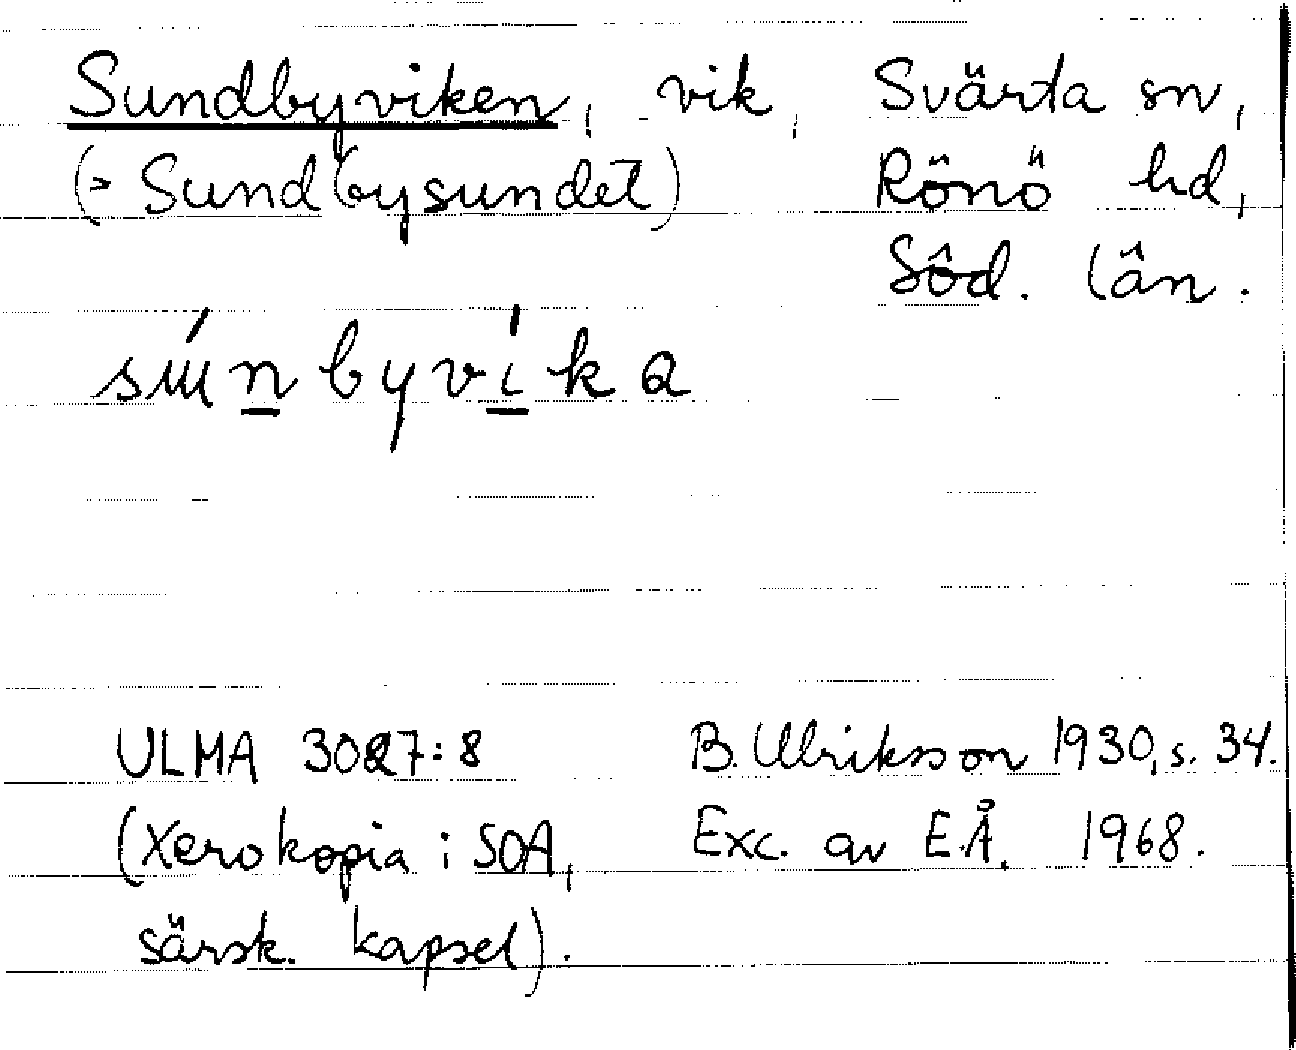 Sundbyviken, vik, Svärta sn,
(= Sundbysundet) Rönö hd,
Söd. län.
ULMA 3027:8 B. Ulriksson 1930, s. 34.
(Xerokopia i SOA, Exc. av E.Å. 1968.
särsk. kapsel).